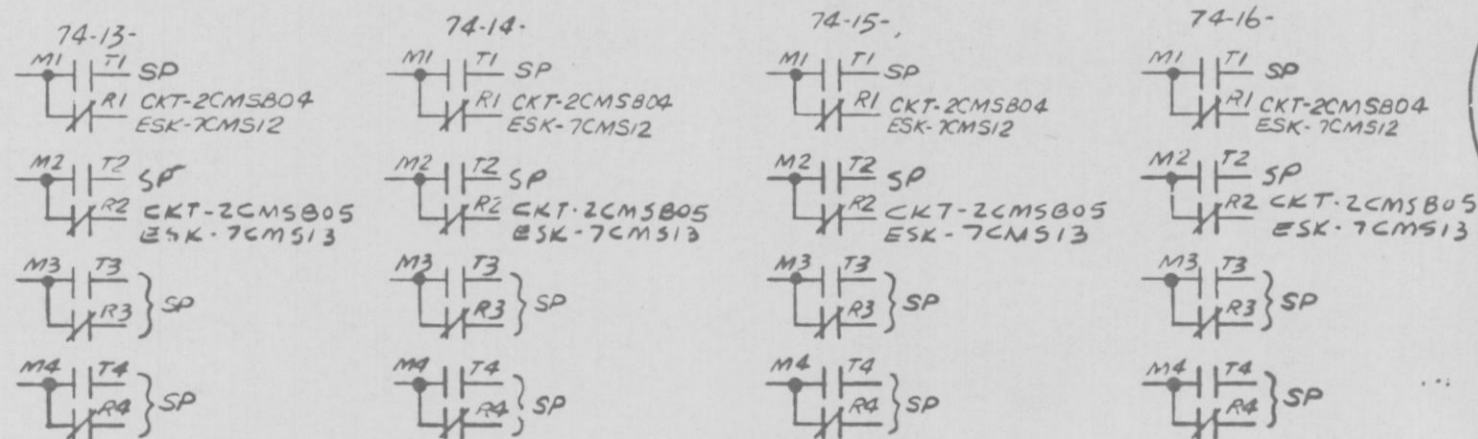 74-13-
M1 T1 SP
R1 CKT-2CMSB04
ESK-7CMS12
M2 T2 SP
R2 CKT-2CMSB05
ESK-7CMS13
M3 T3
R3 } SP
M4 T4
R4 } SP
74-14-
M1 T1 SP
R1 CKT-2CMSB04
ESK-7CMS12
M2 T2 SP
R2 CKT-2CMSB05
ESK-7CMS13
M3 T3
R3 } SP
M4 T4
R4 } SP
74-15-
M1 T1 SP
R1 CKT-2CMSB04
ESK-7CMS12
M2 T2 SP
R2 CKT-2CMSB05
ESK-7CMS13
M3 T3
R3 } SP
M4 T4
R4 } SP
74-16-
M1 T1 SP
R1 CKT-2CMSB04
ESK-7CMS12
M2 T2 SP
R2 CKT-2CMSB05
ESK-7CMS13
M3 T3
R3 } SP
M4 T4
R4 } SP